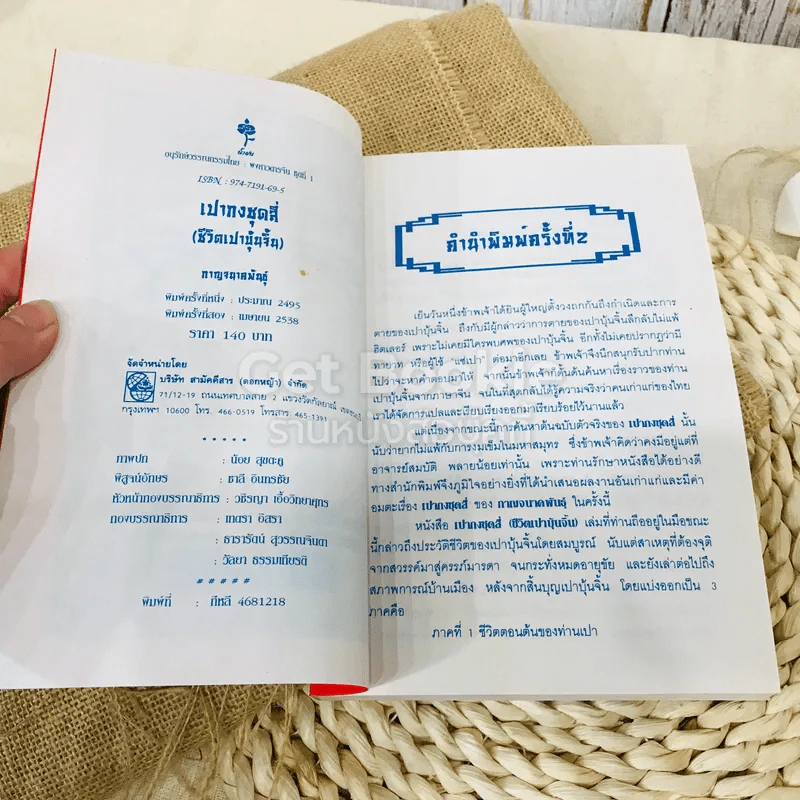 อนุรักษ์วรรณกรรมไทย : พงศาวดารจีน ชุดที่ 1
ISBN : 974-7191-69-5
เปากงชุดสี่
(ชีวิตเปาบุ้นจิ้น)
กาญจนาคพันธุ์
พิมพ์ครั้งที่หนึ่ง : ประมาณ 2495
พิมพ์ครั้งที่สอง : เมษายน 2538
ราคา 140 บาท
จัดจำหน่ายโดย
บริษัท สามัคคีสาร (ดอกหญ้า) จำกัด
71/12-19 ถนนเทศบาลสาย 2 แขวงวัดกัลยาณ์ เขตธนบุรี
กรุงเทพฯ 10600 โทร. 466-0519 โทรสาร 465-1391
* * * * *
ภาพปก : น้อย สุขตะกู
พิสูจน์อักษร : ชาลี อินทรชัย
หัวหน้ากองบรรณาธิการ : วชิรญา เอื้อวิทยาศุภร
กองบรรณาธิการ : เกตรา อิสรา
: ธารารัตน์ สุวรรณจินดา
: วัลยา ธรรมเกียรติ
# # # # #
พิมพ์ที่ : กีหลี 4681218
คำนำพิมพ์ครั้งที่2
เย็นวันหนึ่งข้าพเจ้าได้ยินผู้ใหญ่ตั้งวงถกกันถึงกำเนิดและการ
ตายของเปาบุ้นจิ้น ถึงกับมีผู้กล่าวว่าการตายของเปาบุ้นจิ้นลึกลับไม่แพ้
ฮิตเลอร์ เพราะไม่เคยมีใครพบศพของเปาบุ้นจิ้น อีกทั้งไม่เคยปรากฏว่ามี
ทายาท หรือผู้ใช้ "แซ่เปา" ต่อมาอีกเลย ข้าพเจ้าจึงนึกสนุกรับปากท่าน
ไปว่าจะหาคำตอบมาให้ จากนั้นข้าพเจ้าก็ดั้นด้นค้นหาเรื่องราวของท่าน
เปาบุ้นจิ้นจากภาษาจีน จนในที่สุดกลับได้รู้ความจริงว่าคนเก่าแก่ของไทย
เราได้จัดการแปลและเรียบเรียงออกมาเรียบร้อยไว้นานแล้ว
แต่เนื่องจากขณะนี้การค้นหาต้นฉบับตัวจริงของ เปากงชุดสี่ นั้น
นับว่ายากไม่แพ้กับการงมเข็มในมหาสมุทร ซึ่งข้าพเจ้าคิดว่าคงมีอยู่แต่ที่
อาจารย์สมบัติ พลายน้อยเท่านั้น เพราะท่านรักษาหนังสือได้อย่างดี
ทางสำนักพิมพ์จึงภูมิใจอย่างยิ่งที่ได้นำเสนอผลงานอันเก่าแก่และมีค่า
อมตะเรื่อง เปากงชุดสี่ ของ กาญจนาคพันธุ์ ในครั้งนี้
หนังสือ เปากงชุดสี่ (ชีวิตเปาบุ้นจิ้น) เล่มที่ท่านถืออยู่ในมือขณะ
นี้กล่าวถึงประวัติชีวิตของเปาบุ้นจิ้นโดยสมบูรณ์ นับแต่สาเหตุที่ต้องจุติ
จากสวรรค์มาสู่ครรภ์มารดา จนกระทั่งหมดอายุขัย และยังเล่าต่อไปถึง
สภาพการณ์บ้านเมือง หลังจากสิ้นบุญเปาบุ้นจิ้น โดยแบ่งออกเป็น 3
ภาคคือ
ภาคที่ 1 ชีวิตตอนต้นของท่านเปา
Get Bookie